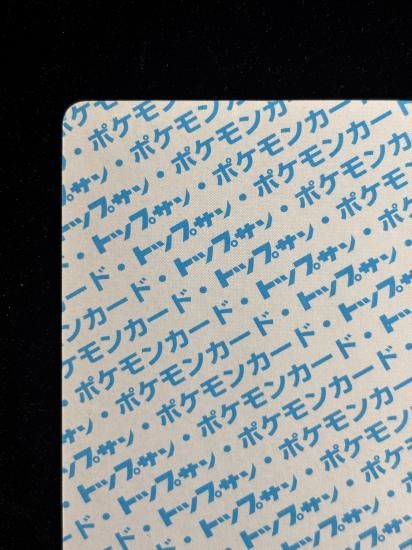 ポケモン
・ポケモンカード
・ポケモンカード
トップサン・ポケモンカード
ド・トップサン・ポケモン
カード・トップサン・ポケ
ンカード・トップサン・
ケモンカード・トップサン
・ポケモンカード・トップ
・ポケモンカード・
トップサン・ポケモンカード
・トップサン・ポケモン
ード・トップサン・ポケ
トップサン